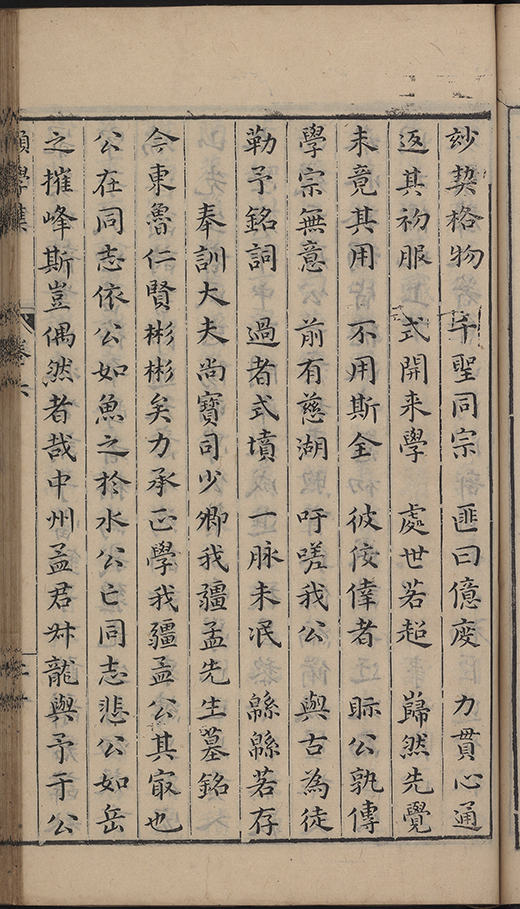 妙契格物　千聖同宗　匪曰億度　力貫心通
返其初服　式開来學　處世若超　巋然先覺
未竟其用　不用斯全　彼佞倖者　眎公孰傳
學宗無意　公前有慈湖　吁嗟我公　與古為徒
勒予銘詞　過者式墳　一脉未泯　緜緜若存
奉訓大夫尚寶司少卿我疆孟先生墓銘
今東魯仁賢彬彬矣力承正學我疆孟公其㝡也
公在同志依公如魚之於水公亡同志悲公如岳
之摧峰斯豈偶然者哉中州孟君叔龍與予于公
願學集
卷六